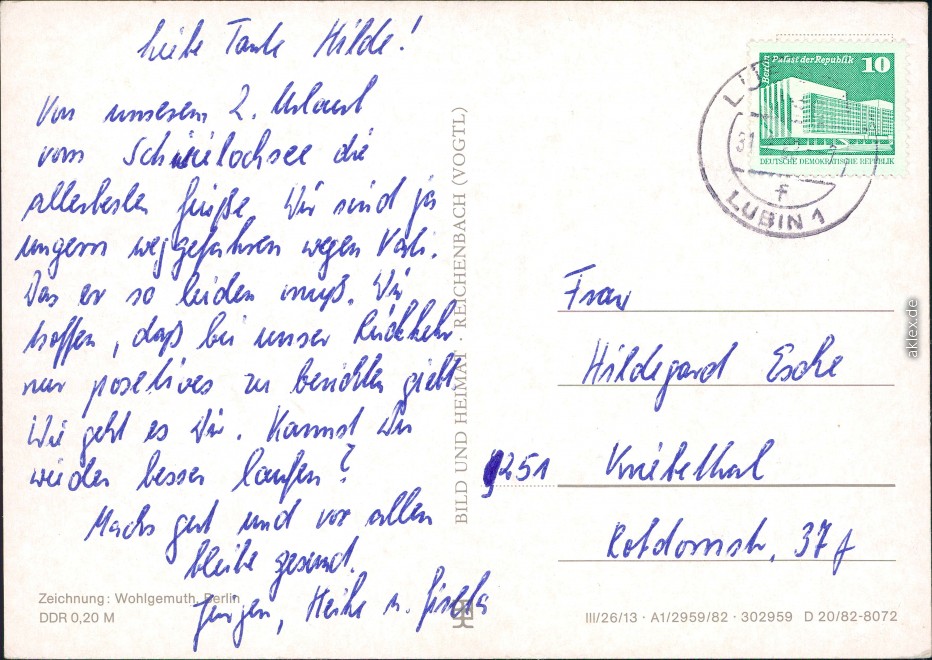 Liebe Tante Hilde!
Von unserem 2. Urlaub
vom Schwielochsee die
allerbesten Grüße. Wir sind ja
ungern weggefahren wegen Vati.
Das er so leiden muß. Wir
hoffen, daß bei unser Rückkehr
nur posetives zu berichten giebt.
Wie geht es Dir. Kannst Du
wieder besser laufen?
Machs gut und vor allen
bleibe gesund.
Jürgen, Heike u. Gisela
Zeichnung: Wohlgemuth, Berlin
DDR 0,20 M
BILD UND HEIMAT · REICHENBACH (VOGTL)
Berlin
Palast der Republik
10
DEUTSCHE DEMOKRATISCHE REPUBLIK
31
LUBIN 1
f
Frau
Hildegard Esche
9251 Kriebethal
Rotdornstr. 37 f
III/26/13 · A1/2959/82 · 302959 D 20/82-8072
aklex.de